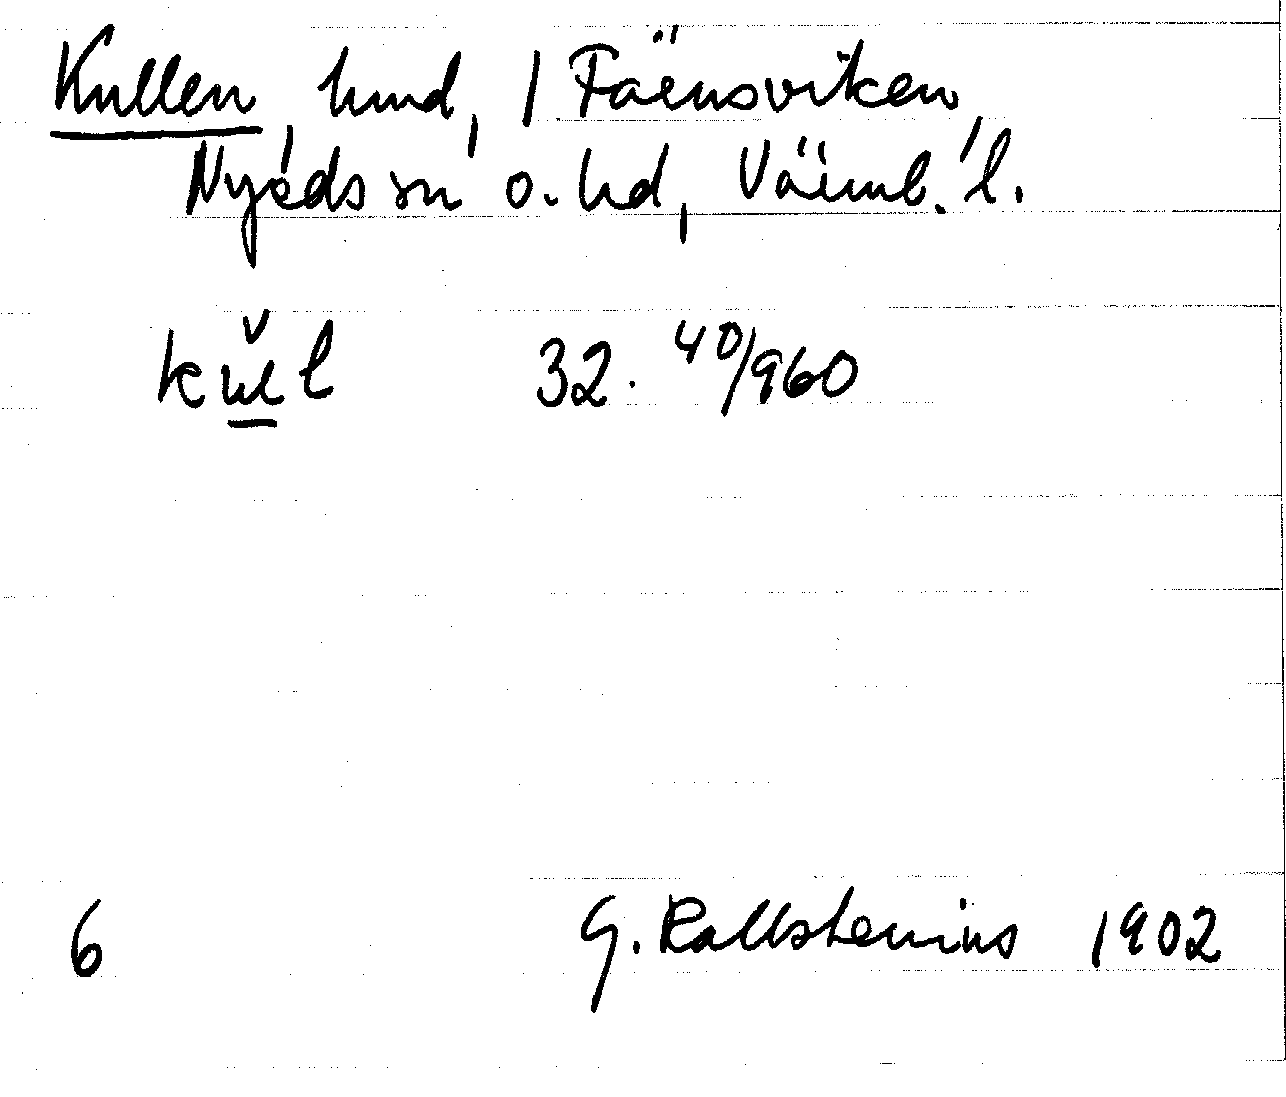 Kullen, hmd, / Färnsviken
Nyeds sn o. hd, Värml. l.
kŭl 32. 40/960
6 G. Kallstenius 1902